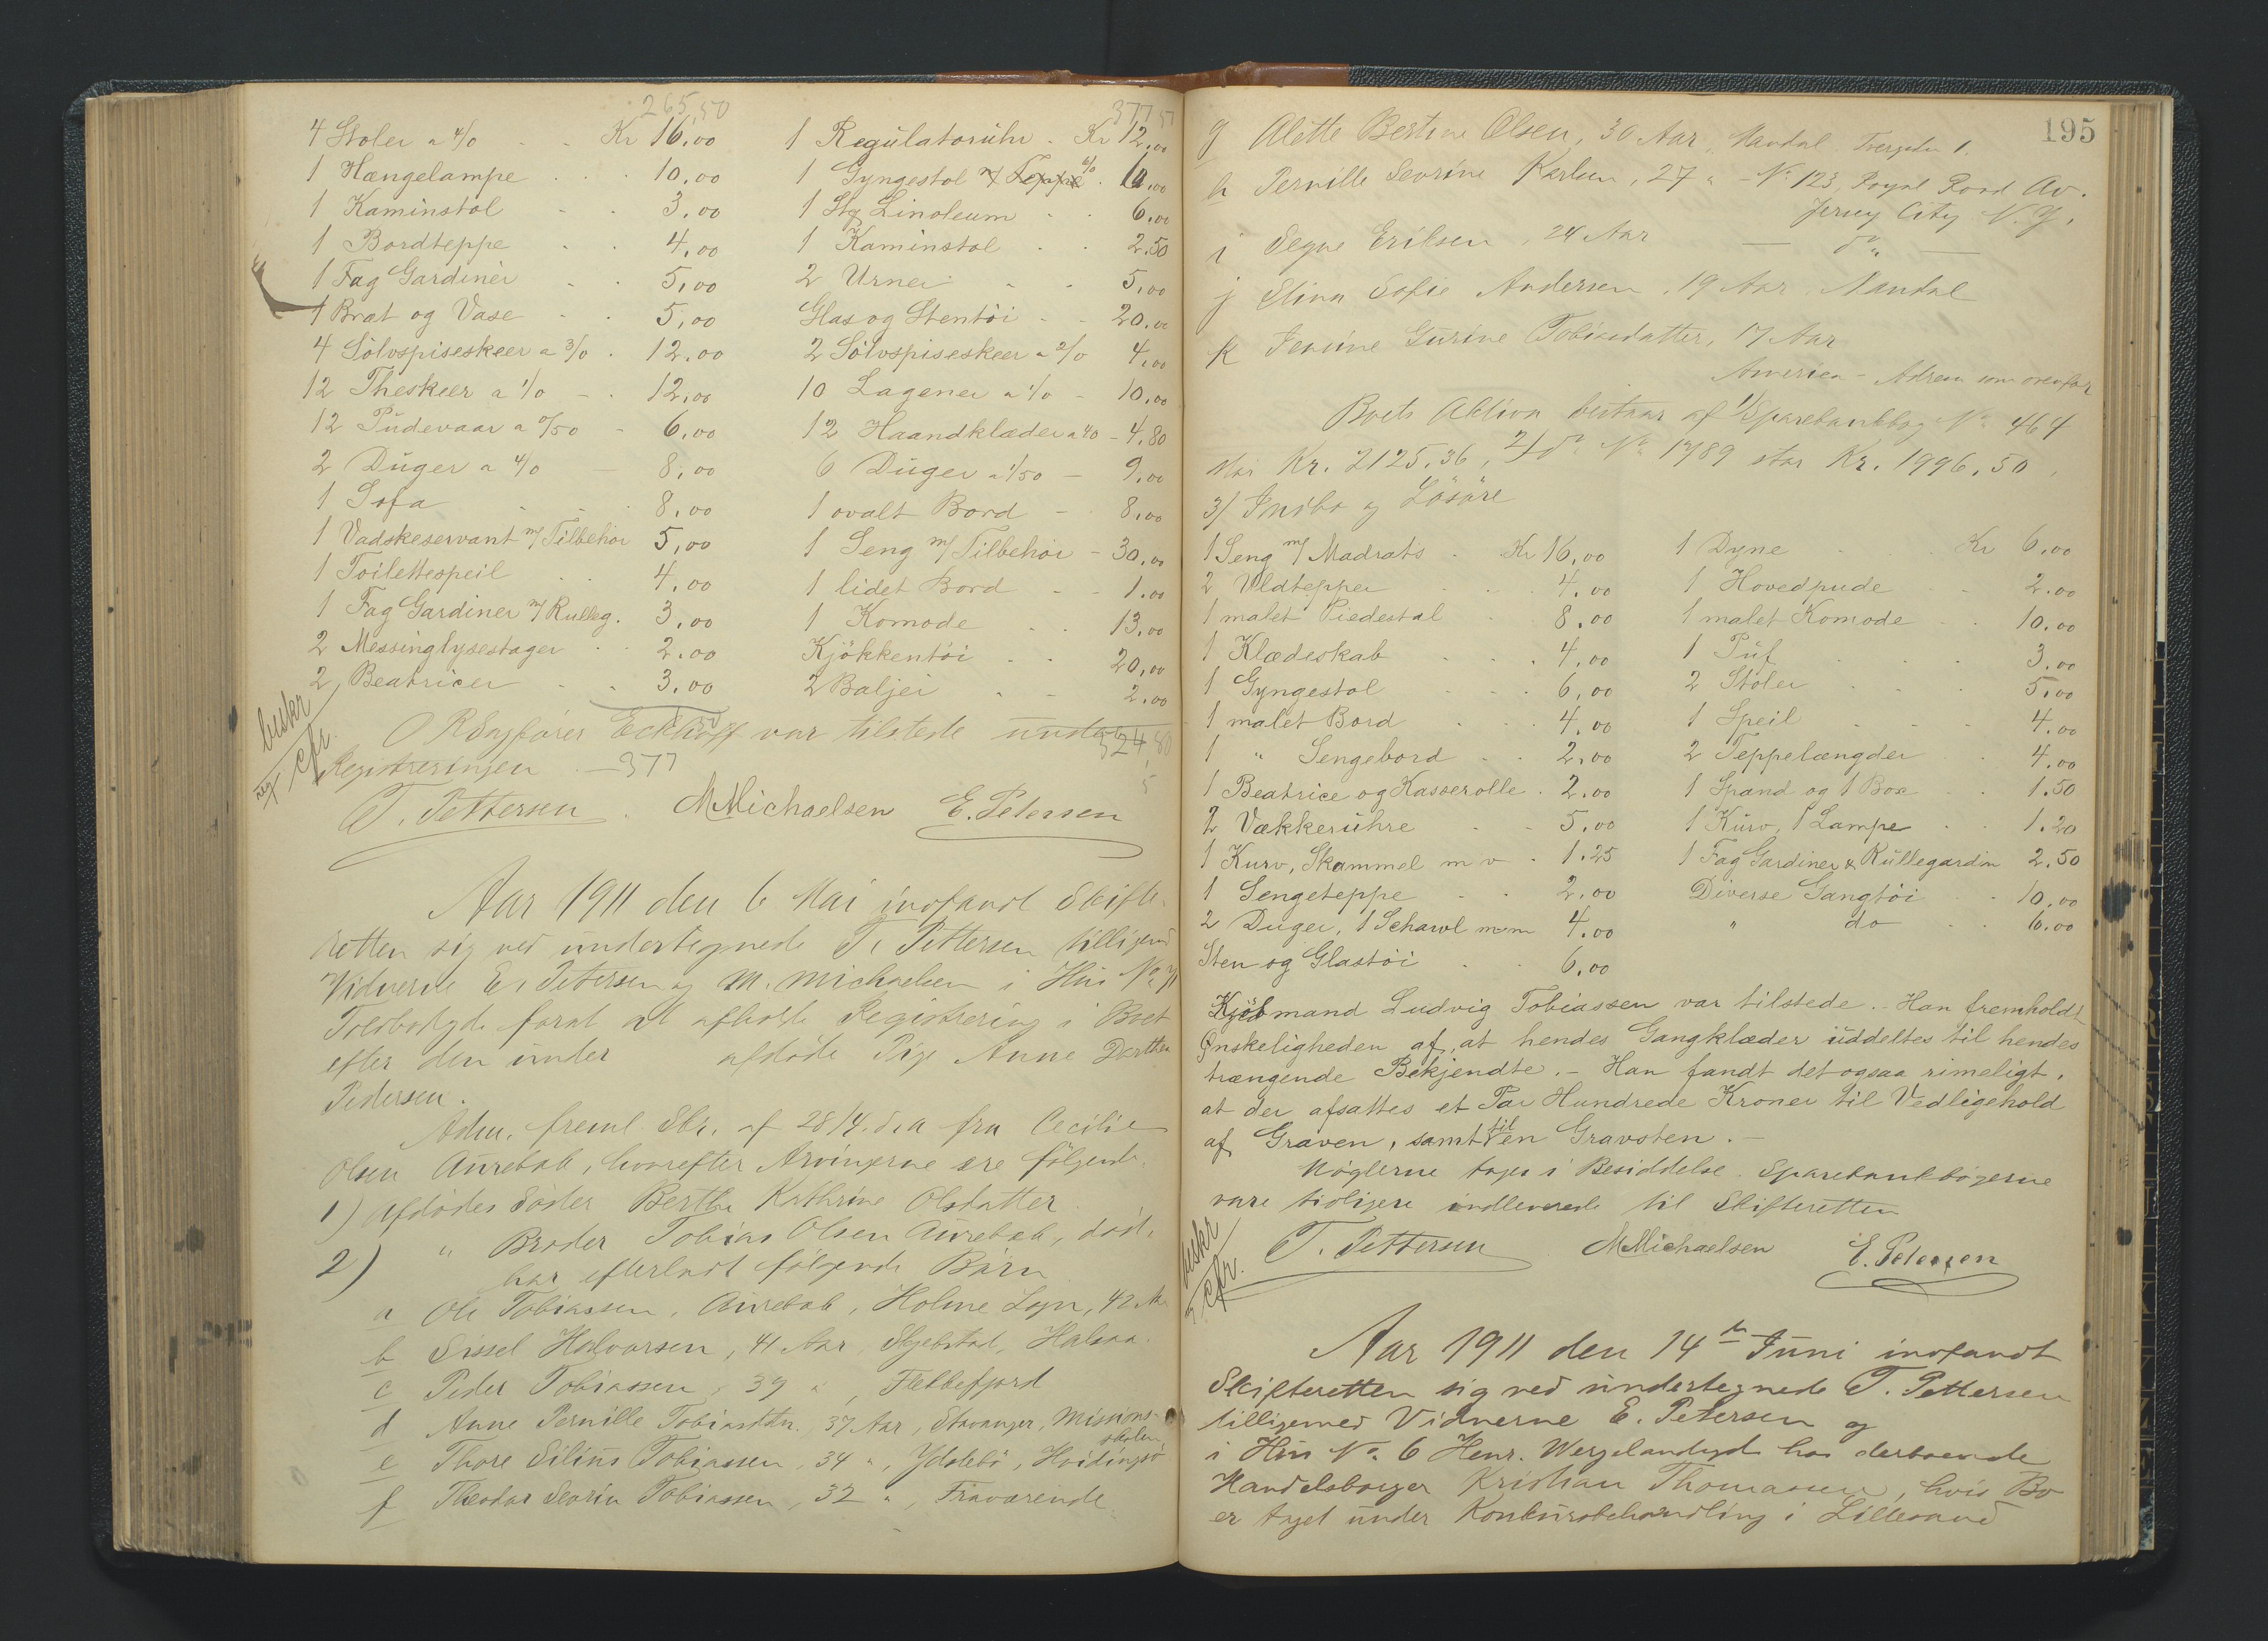 265,50
4 Stoler a 4/0 Kr 16,00
1 Hængelampe 10,00
1 Kaminstol 3,00
1 Bordteppe 4,00
1 Fag Gardiner 5,00
1 Brat og Vase 5,00
4 Sölvspiseskeer a 3/0 12,00
12 Theskeer a 1/0 12,00
12 Pudevaar a 0/50 6,00
2 Duger a 4/0 8,00
1 Sofa 8,00
1 Vadskeservant m/ Tilbehör 5,00
1 Toilettespeil 4,00
1 Fag Gardiner m/ Rulleg. 3,00
2 Messinglysestager 2,00
2 Beatricer 3,00
377
1 Regulatoruhr Kr 12,00
1 Gyngestol
1 Stg Linoleum 6,00
1 Kaminstol 2,50
2 Urner 5,00
Glas og Stentöi 20,00
2 Sölvspiseskeer a 2/0 4,00
10 Lagener a 1/0 10,00
12 Haandklæder a 40 4,80
6 Duger a 1/50 9,00
1 ovalt Bord 8,00
1 Seng m/ Tilbehör 30,00
1 lidet Bord 1,00
1 Komode 13,00
Kjökkentöi 20,00
2 Baljer 2,00
beskr
cfr.
Eckhoff var tilstede under
Registreringen. 377
T. Pettersen. MMichaelsen E. Petersen
Aar 1911 den 6 Mai indfandt Skifte-
retten sig ved undertegnede T. Pettersen tilligemed
Vidnerne E. Petersen og M. Michaelsen i Hus No
for at afholde Registrering i Boet
efter den under afdöde Pige Anne Dorthea
Pedersen.
Adm. freml Skr. af 28/4. d. a fra Cecilie
Olsen Aurebak, hvorefter Arvingerne ere fölgende
1) Afdödes Söster Berthe Kathrine Olsdatter
2) " Broder Tobias Olsen Aurebak, död,
har efterladt fölgende Börn
a Ole Tobiassen, Aurebak, Holme Sogn, 42 Aar
b Sissel Halvorsen, 41 Aar, Halsaa
c Peder Tobiassen, 39 ", Flekkefjord
d Anne Pernille Tobiasdtr. 37 Aar, Stavanger, Missions-
skolen
e Thore Silius Tobiassen, 34 ", Hvidingsö
f Theodor Severin Tobiassen, 32 ", Fraværende
195
g Alette Bertine Olsen, 30 Aar, Mandal, 1.
h Pernille Severine Karlsen, 27 " No 123, Royal Road Av.
Jersey City N. Y.
i Eriksen, 24 Aar — do —
j Elina Sofie Andersen, 19 Aar, Mandal
k Gurine Tobiasdatter, 17 Aar
America - Adresse som ovenfor
Boets Aktiva bestaar af 1/ Sparebankbog No 464
stor Kr. 2125,36, 2/ do No 1789 stor Kr. 1996,50,
3/ Indbo og Lösöre
1 Seng m/ Madrats Kr 16,00
2 Uldtepper 4,00
1 malet Piedestal 8,00
1 Klædeskab 4,00
1 Gyngestol 6,00
1 malet Bord 4,00
1 " Sengebord 2,00
1 Beatrice og Kasserolle 2,00
2 Vækkeruhre 5,00
1 Kurv, Skammel m v 1.25
1 Sengeteppe 2,00
2 Duger, 1 Schawl mm 4,00
Sten og Glastöi 6,00
1 Dyne Kr 6,00
1 Hovedpude 2,00
1 malet Komode 10,00
1 Puf 3,00
2 Stoler 5,00
1 Speil 4,00
2 Teppelængder 4,00
1 Spand og 1 Box 1.50
1 Kurv, 1 Lampe 1.20
1 Fag Gardiner & Rullegardin 2,50
Diverse Gangtöi 10,00
" do 6,00
Kjöbmand Ludvig Tobiassen var tilstede. - Han fremholdt
Önskeligheden af, at hendes Gangklæder uddeltes til hendes
trængende Bekjendte. - Han fandt det ogsaa rimeligt,
at der afsattes et Par Hundrede Kroner til Vedligehold
af Graven, samt til en Gravsten. -
Nöglerne toges i Besiddelse. Sparebankbögerne
vare tidligere indleverede til Skifteretten
beskr
cfr.
T. Pettersen MMichaelsen E. Petersen
Aar 1911 den 14de Juni indfandt
Skifteretten sig ved undertegnede T. Pettersen
tilligemed Vidnerne E. Petersen og
i Hus No 6 Henr. Wergelandsgd. hos derboende
Handelsborger Kristian Thomassen, hvis Bo
er taget under Konkursbehandling i Lillesand